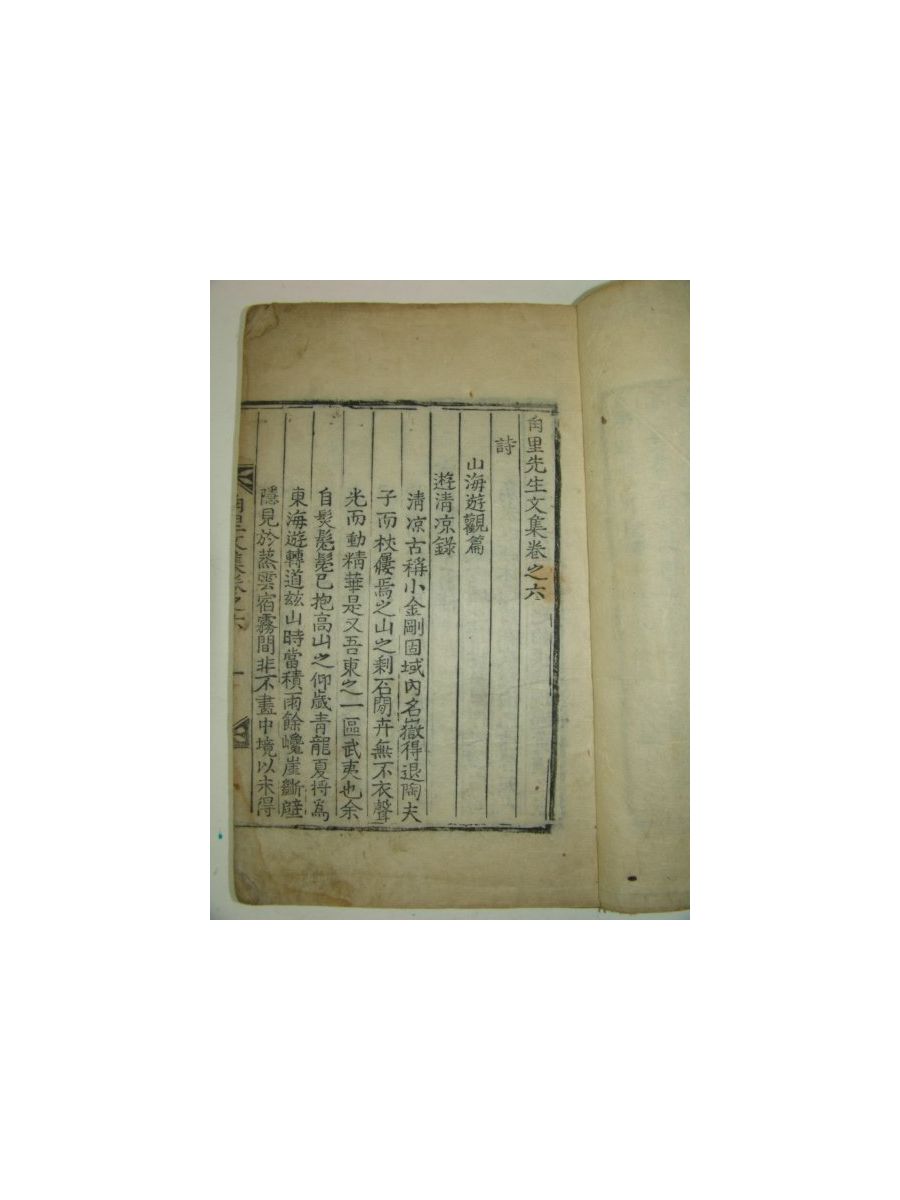 甪里先生文集卷之六
詩
山海遊觀篇
遊清凉錄
清凉古稱小金剛固域內名嶽得退陶夫
子而杖屨焉之山之剩石閒卉無不衣聲
光而動精華是又吾東之一區武夷也余
自髮髧髦已抱高山之仰歲青龍夏將爲
東海遊轉道玆山時當積雨餘巉崖斷壁
隱見於蒸雲宿霧間非不畫中境以未得
甪里文集卷之六 一